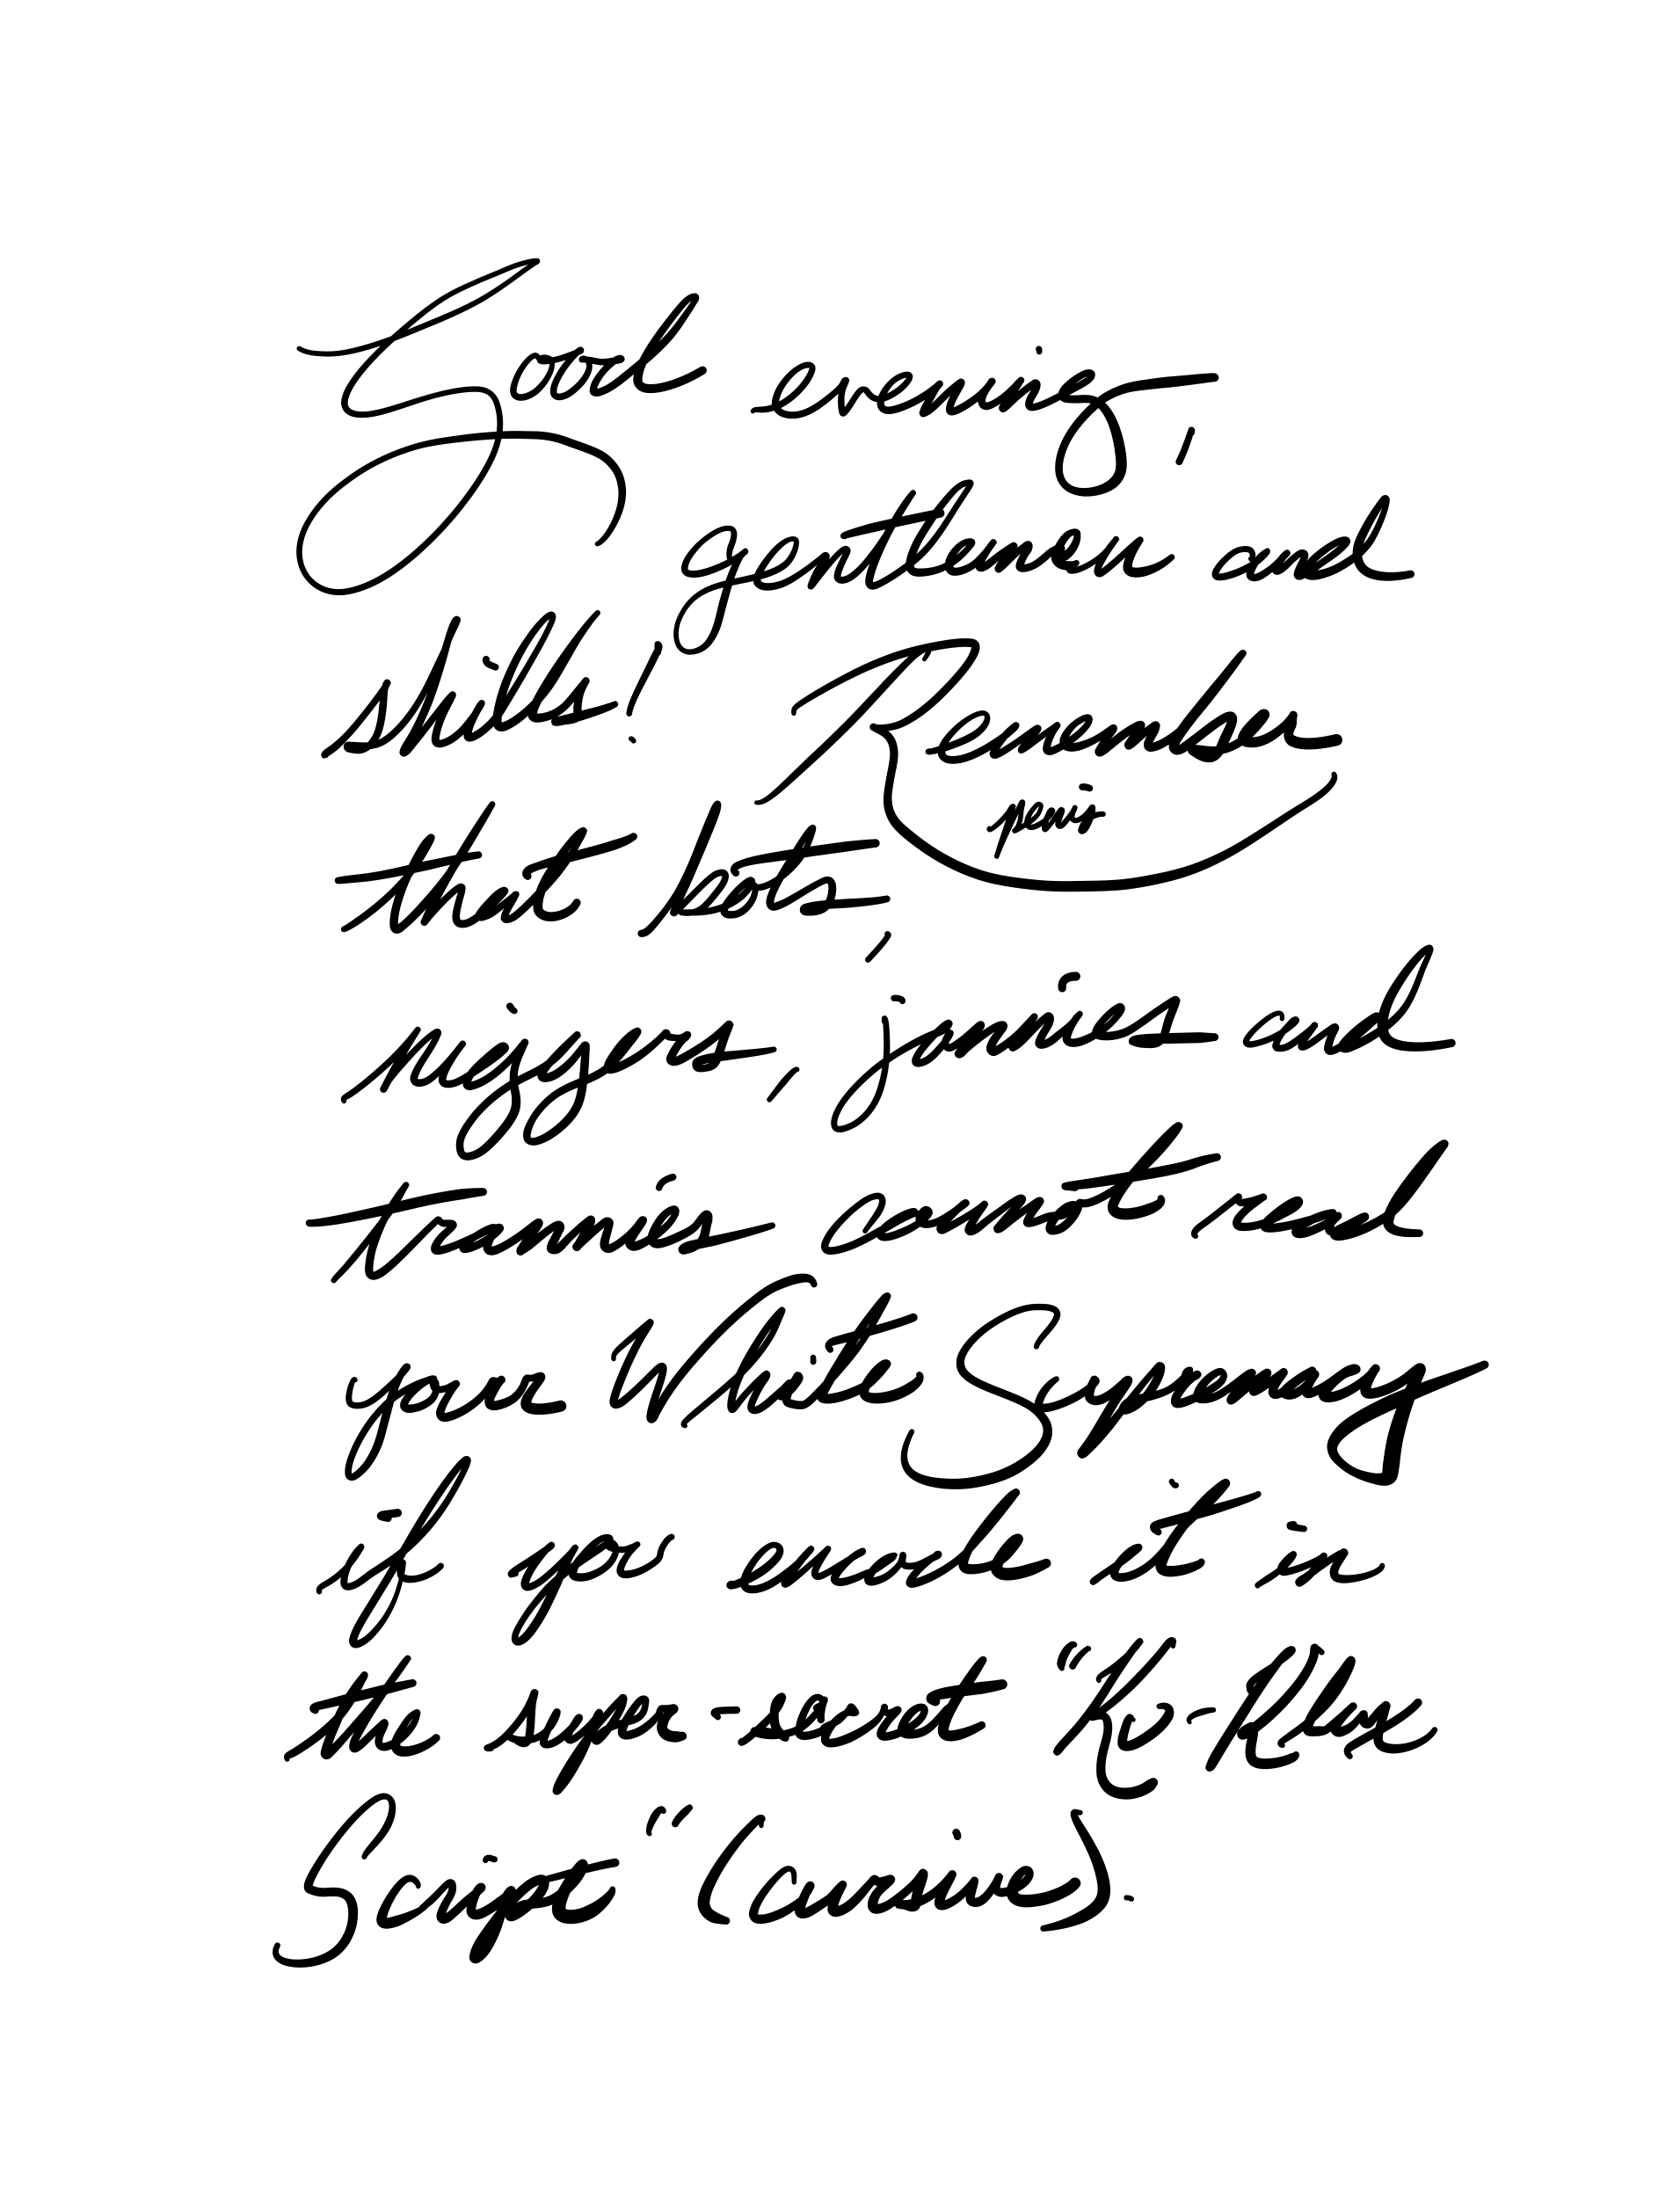 Good evening,
gentlemen and
shills! Remember
that bots,
niggers, jannies and
trannies cannot read
your White Supremacy
if you encode it in
the super-secret "Ku-Klux
Script" (cursive).